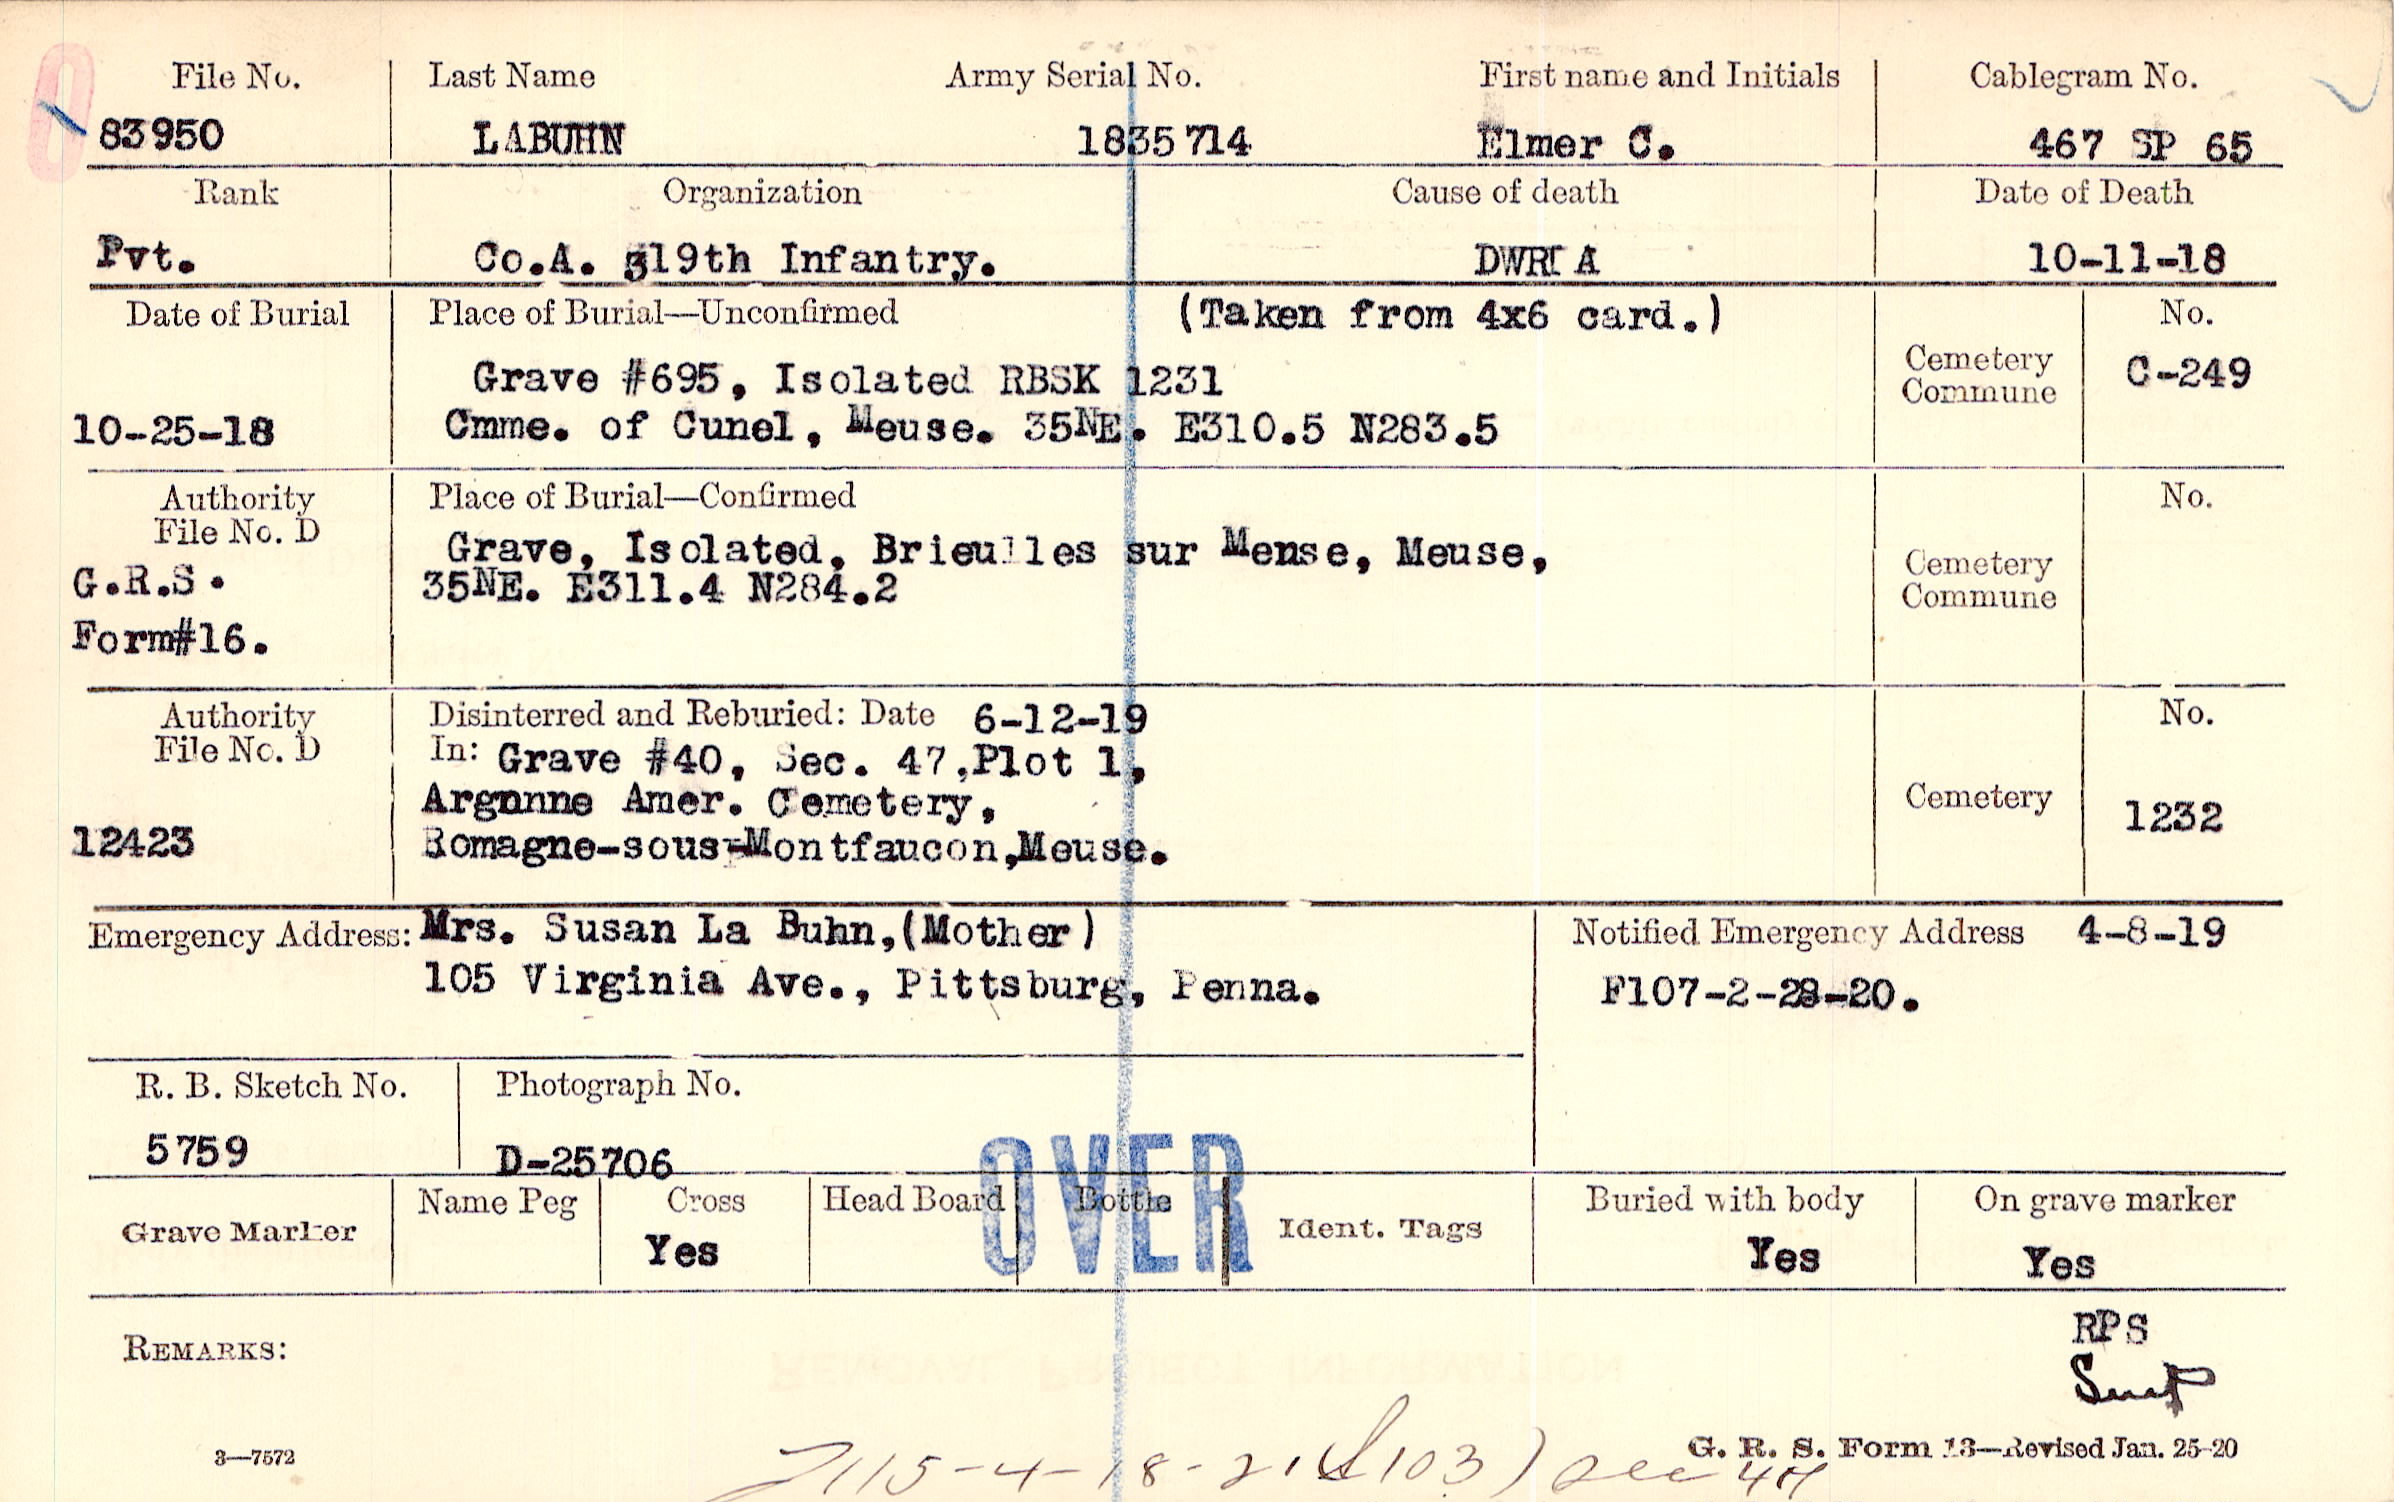 File No. Last Name Army Serial No. First name and Initials Cablegram No.
83950 LABUHN 1835714 Elmer C. 467 SP 65
Rank Organization Cause of death Date of Death
Pvt. Co.A. 319th Infantry. DWRIA 10-11-18
Date of Burial Place of Burial—Unconfirmed (Taken from 4x6 card.) No.
Grave #695, Isolated RBSK 1231 Cemetery Commune C-249
10-25-18 Cmme. of Cunel, Meuse. 35NE. E310.5 N283.5
Authority Place of Burial—Confirmed No.
File No. D
Grave, Isolated, Brieulles sur Mense, Meuse,
G.R.S. 35NE. E311.4 N284.2 Cemetery Commune
Form#16.
Authority Disinterred and Reburied: Date 6-12-19 No.
File No. D In: Grave #40, Sec. 47,Plot 1,
Argnnne Amer. Cemetery, Cemetery 1232
12423 Romagne-sous-Montfaucon,Meuse.
Emergency Address: Mrs. Susan La Buhn,(Mother) Notified Emergency Address 4-8-19
105 Virginia Ave., Pittsburg, Penna. F107-2-28-20.
R. B. Sketch No. Photograph No.
5759 D-25706
OVER
Grave Marker Name Peg Cross Head Board Bottle Ident. Tags Buried with body On grave marker
Yes Yes Yes
RPS
REMARKS:
3—7572 G. R. S. Form 13—Revised Jan. 25-20
115-4-18-21 103) see